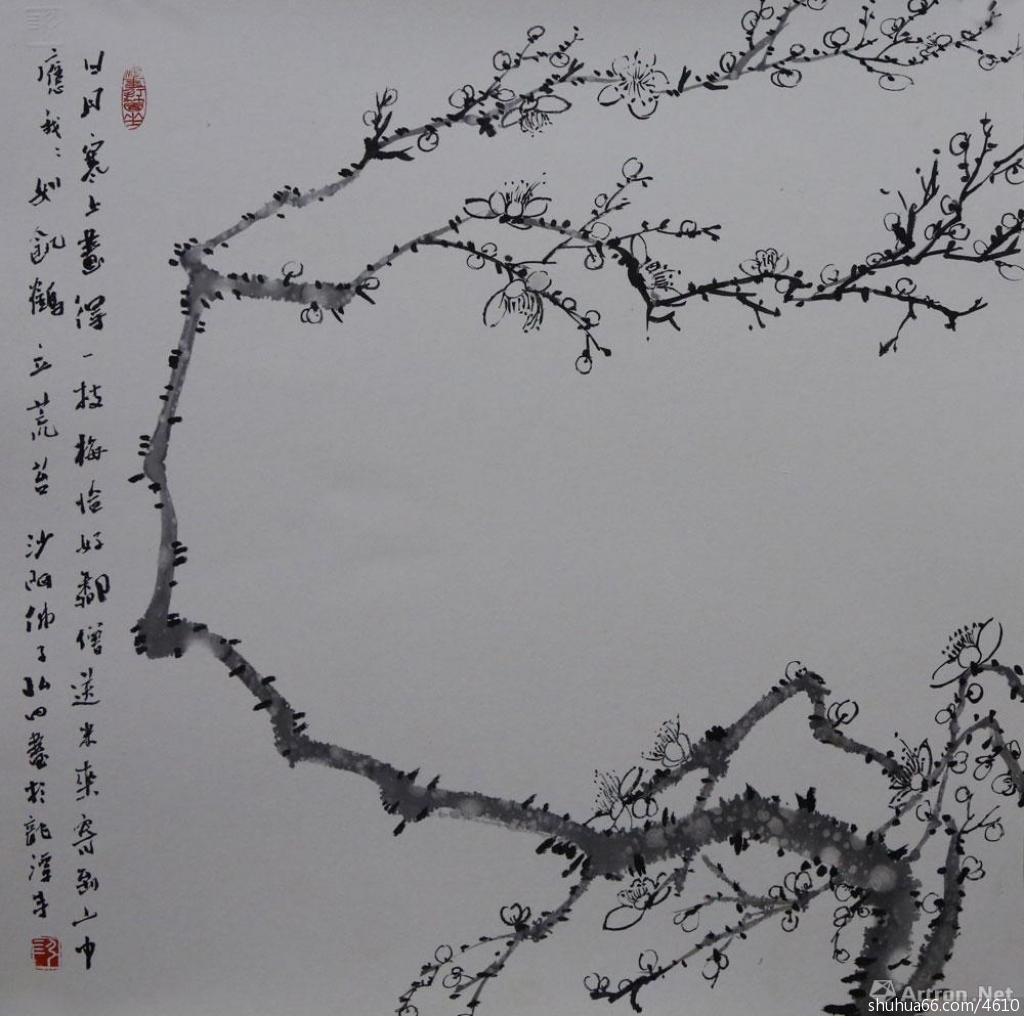 寒上畫得一枝梅恰好鄰僧送米來寄到山中
應我〻如飢鶴立荒苔 沙陽佛子 畫於龍潭寺
Artron.Net
shuhua66.com/4610